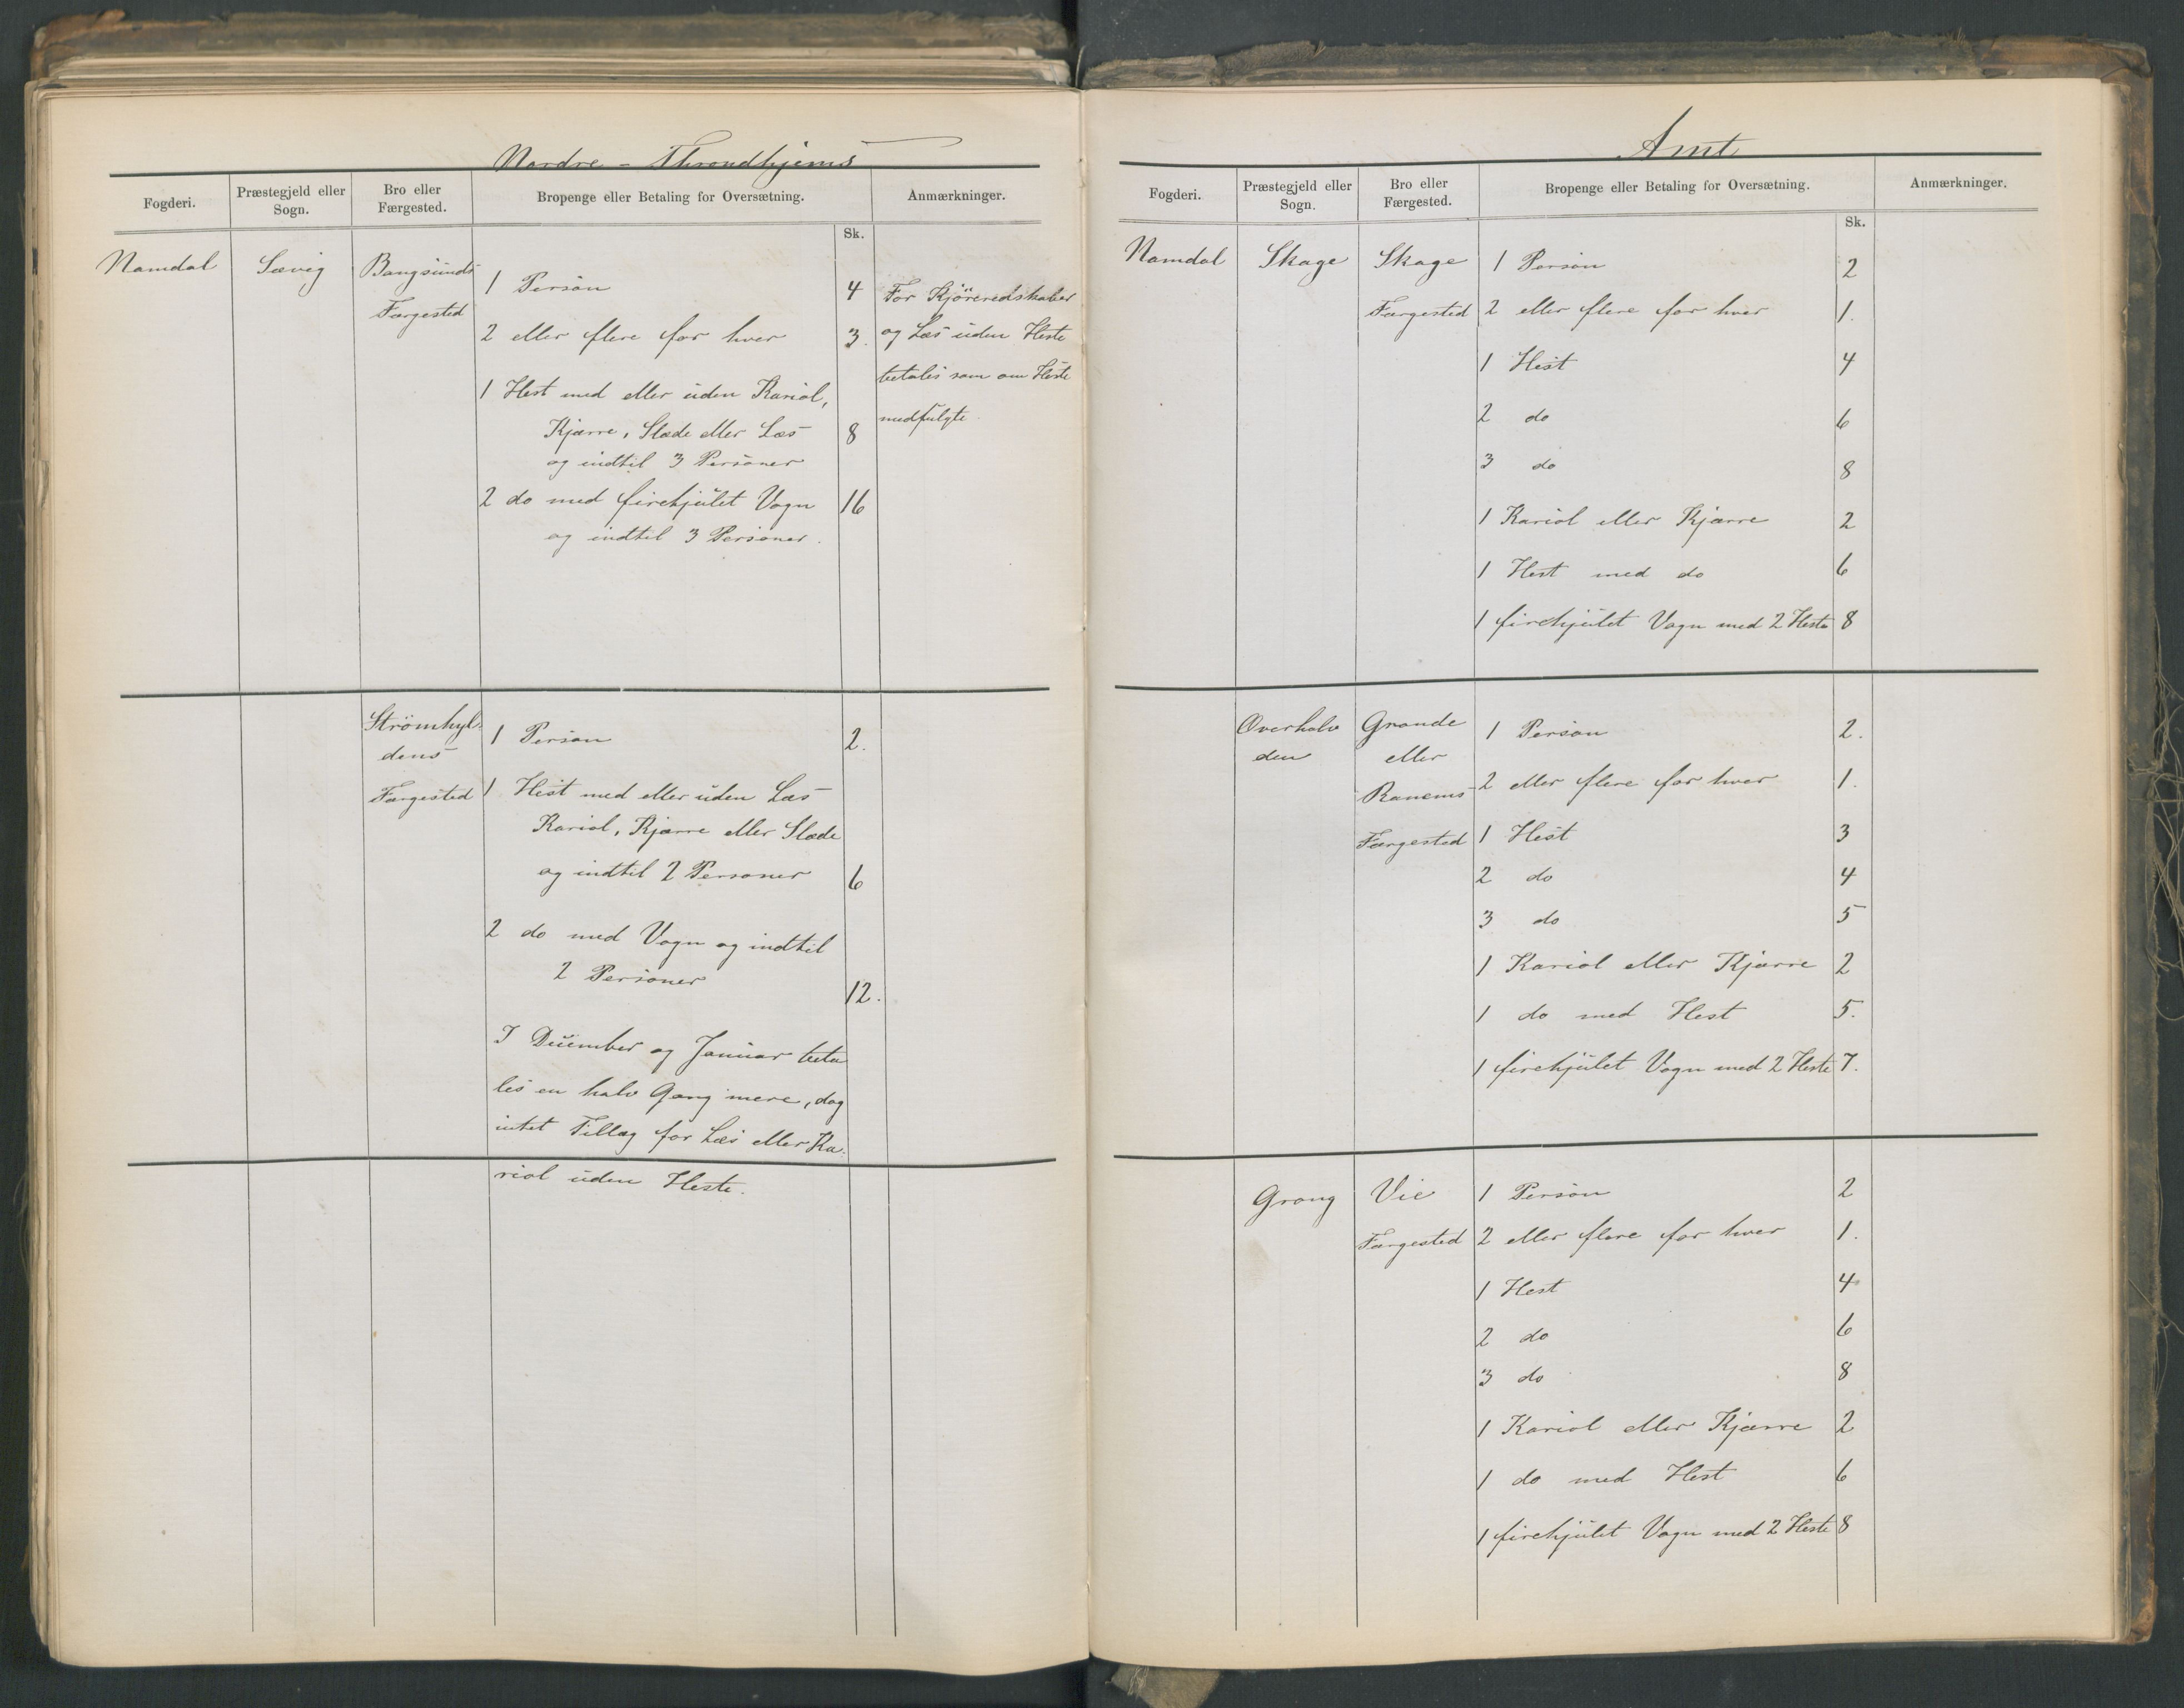 Nordre - Throndhjems
Fogderi.
Præstegjeld eller
Sogn.
Bro eller
Færgested.
Bropenge eller Betaling for Oversætning.
Anmærkninger.
Sk.
Namdal
Sævig
Bangsunds
Færgested
1 Person 4
2 eller flere for hver 3.
1 Hest med eller uden Kariol,
Kjærre, Slæde eller Læs 8
og indtil 3 Personer
2 do med firehjulet Vogn 16
og indtil 3 Personer.
For Kjöreredskaber
og Læs uden Heste
betales som om Heste
medfulgte.
Strömhyl-
dens
Færgested
1 Person 2.
1 Hest med eller uden Læs
Kariol, Kjærre eller Slæde
og indtil 2 Personer 6
2 do med Vogn og indtil
2 Personer 12.
I December og Januar beta
les en halv Gang mere, dog
intet Tillæg for Læs eller Ka-
riol uden Heste.
Amt
Fogderi.
Præstegjeld eller
Sogn.
Bro eller
Færgested.
Bropenge eller Betaling for Oversætning.
Anmærkninger.
Sk.
Namdal
Skage
Skage
Færgested
1 Person 2
2 eller flere for hver 1.
1 Hest 4
2 do 6
3 do 8
1 Kariol eller Kjærre 2
1 Hest med do 6
1 firehjulet Vogn med 2 Heste 8
Overhalv
den
Grande
eller
Ranems
Færgested
1 Person 2.
2 eller flere for hver 1.
1 Hest 3
2 do 4
3 do 5
1 Kariol eller Kjærre 2
1 do med Hest 5.
1 firehjulet Vogn med 2 Heste 7.
Grong
Vie
Færgested
1 Person 2
2 eller flere for hver 1.
1 Hest 4
2 do 6
3 do 8
1 Kariol eller Kjærre 2
1 do med Hest 6
1 firehjulet Vogn med 2 Heste 8